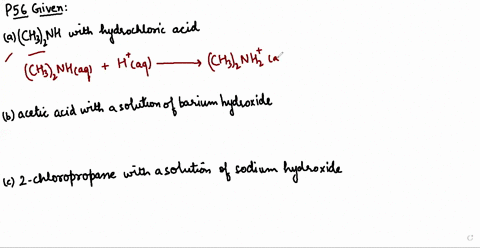 P56 Given:
(a) (CH3)2NH with hydrochloric acid
(CH3)2NH(aq) + H+(aq) ⟶ (CH3)2NH2+ (a
(b) acetic acid with a solution of barium hydroxide
(c) 2-chloropropane with a solution of sodium hydroxide